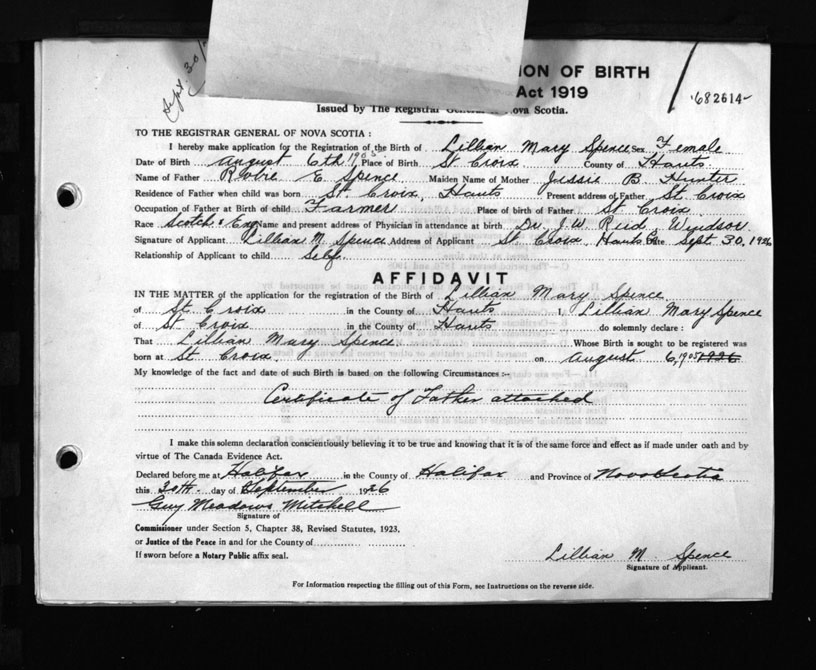 Sept. 30/
ION OF BIRTH
Act 1919
682614
Issued by The Registrar General of Nova Scotia.
TO THE REGISTRAR GENERAL OF NOVA SCOTIA :
I hereby make application for the Registration of the Birth of Lillian Mary Spence Sex Female
Date of Birth August 6th 1905 Place of Birth St Croix County of Hants
Name of Father Robie E Spence Maiden Name of Mother Jessie B Hunter
Residence of Father when child was born St. Croix, Hants Present address of Father St Croix
Occupation of Father at Birth of child Farmer Place of birth of Father St Croix
Race Scotch & Eng Name and present address of Physician in attendance at birth Dr. J. W. Reid Windsor
Signature of Applicant Lillian M Spence Address of Applicant St Croix Hants Co Date Sept. 30, 1926
Relationship of Applicant to child Self.
AFFIDAVIT
IN THE MATTER of the application for the registration of the Birth of Lillian Mary Spence
of St. Croix in the County of Hants I, Lillian Mary Spence
of St. Croix in the County of Hants do solemnly declare :
That Lillian Mary Spence Whose Birth is sought to be registered was
born at St Croix. on August 6, 1905 1926
My knowledge of the fact and date of such Birth is based on the following Circumstances :-
Certificate of Father attached
I make this solemn declaration conscientiously believing it to be true and knowing that it is of the same force and effect as if made under oath and by
virtue of The Canada Evidence Act.
Declared before me at Halifax in the County of Halifax and Province of Nova Scotia
this 30th day of September 1926
Guy Meadows Mitchell
Signature of
Commissioner under Section 5, Chapter 38, Revised Statutes, 1923.
or Justice of the Peace in and for the County of
If sworn before a Notary Public affix seal.
Lillian M Spence
Signature of Applicant.
For Information respecting the filling out of this Form, see Instructions on the reverse side.